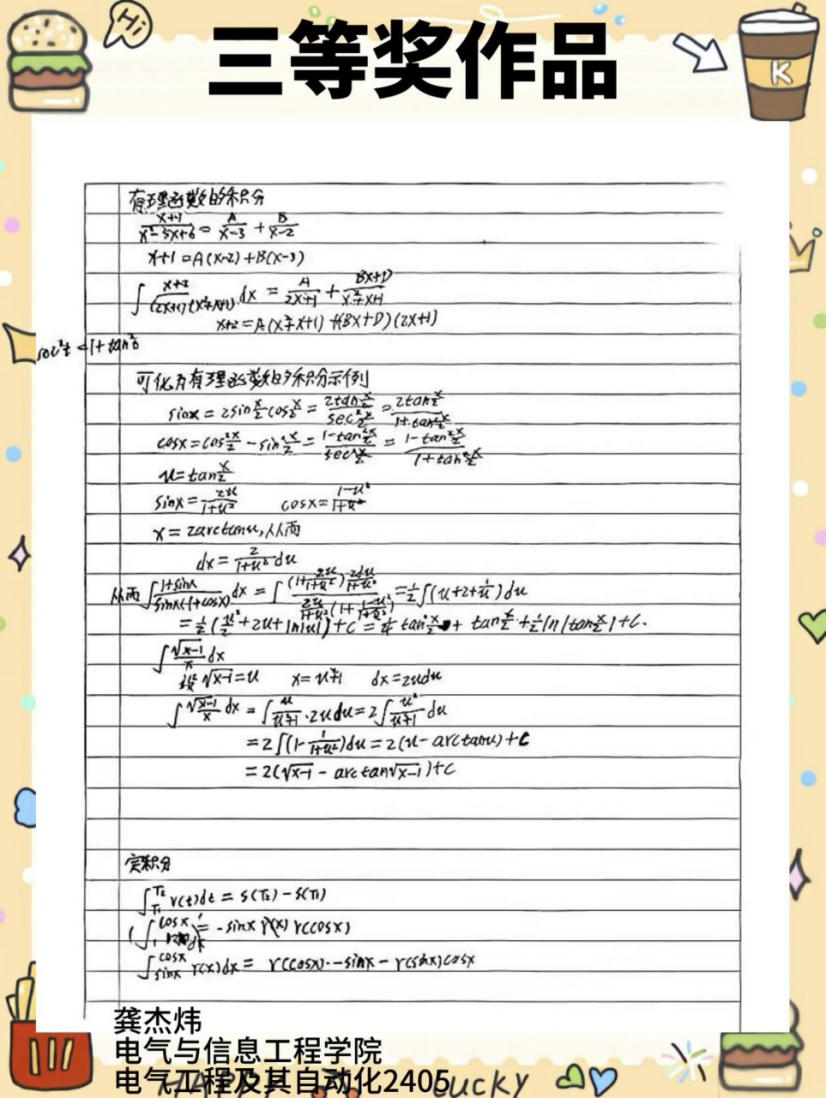 Hi
三等奖作品
K
有理函数的积分
x+1/x²-5x+6 = A/x-3 + B/x-2
x+1=A(x-2)+B(x-3)
∫ x+2/(2x+1)(x²+x+1) dx = A/2x+1 + Bx+D/x²+x+1
x+2=A(x²+x+1)+(Bx+D)(2x+1)
可化为有理函数的积分示例
sinx = 2sin x/2 cos x/2 = 2tan x/2 / sec² x/2 = 2tan x/2 / 1+tan² x/2
cosx=cos² x/2 - sin² x/2 = 1-tan² x/2 / sec² x/2 = 1-tan² x/2 / 1+tan² x/2
u=tan x/2
sinx = 2u/1+u² cosx= 1-u²/1+u²
x = 2arctanu,从而
dx = 2/1+u² du
从而 ∫ 1+sinx/sinx(1+cosx) dx = ∫ (1+ 2u/1+u²) 2du/1+u² / 2u/1+u² (1+ 1-u²/1+u²) = 1/2 ∫(u+2+ 1/u)du
= 1/2 (u²/2 +2u+ln|u|)+C = 1/4 tan² x/2 + tan x/2 + 1/2 ln|tan x/2|+C.
∫ √x-1/x dx
设√x-1=u x=u²+1 dx=2udu
∫ √x-1/x dx = ∫ u/u²+1 ·2udu=2∫ u²/u²+1 du
=2∫(1- 1/1+u²)du=2(u-arctanu)+C
=2(√x-1 - arctan√x-1)+C
定积分
∫T₁^T₂ v(t)dt = s(T₂)-s(T₁)
= -sinx r(cosx)
∫sinx^cosx r(x)dx = r(cosx)·-sinx - r(sinx)cosx
龚杰炜
电气与信息工程学院
电气工程及其自动化2405
Lucky